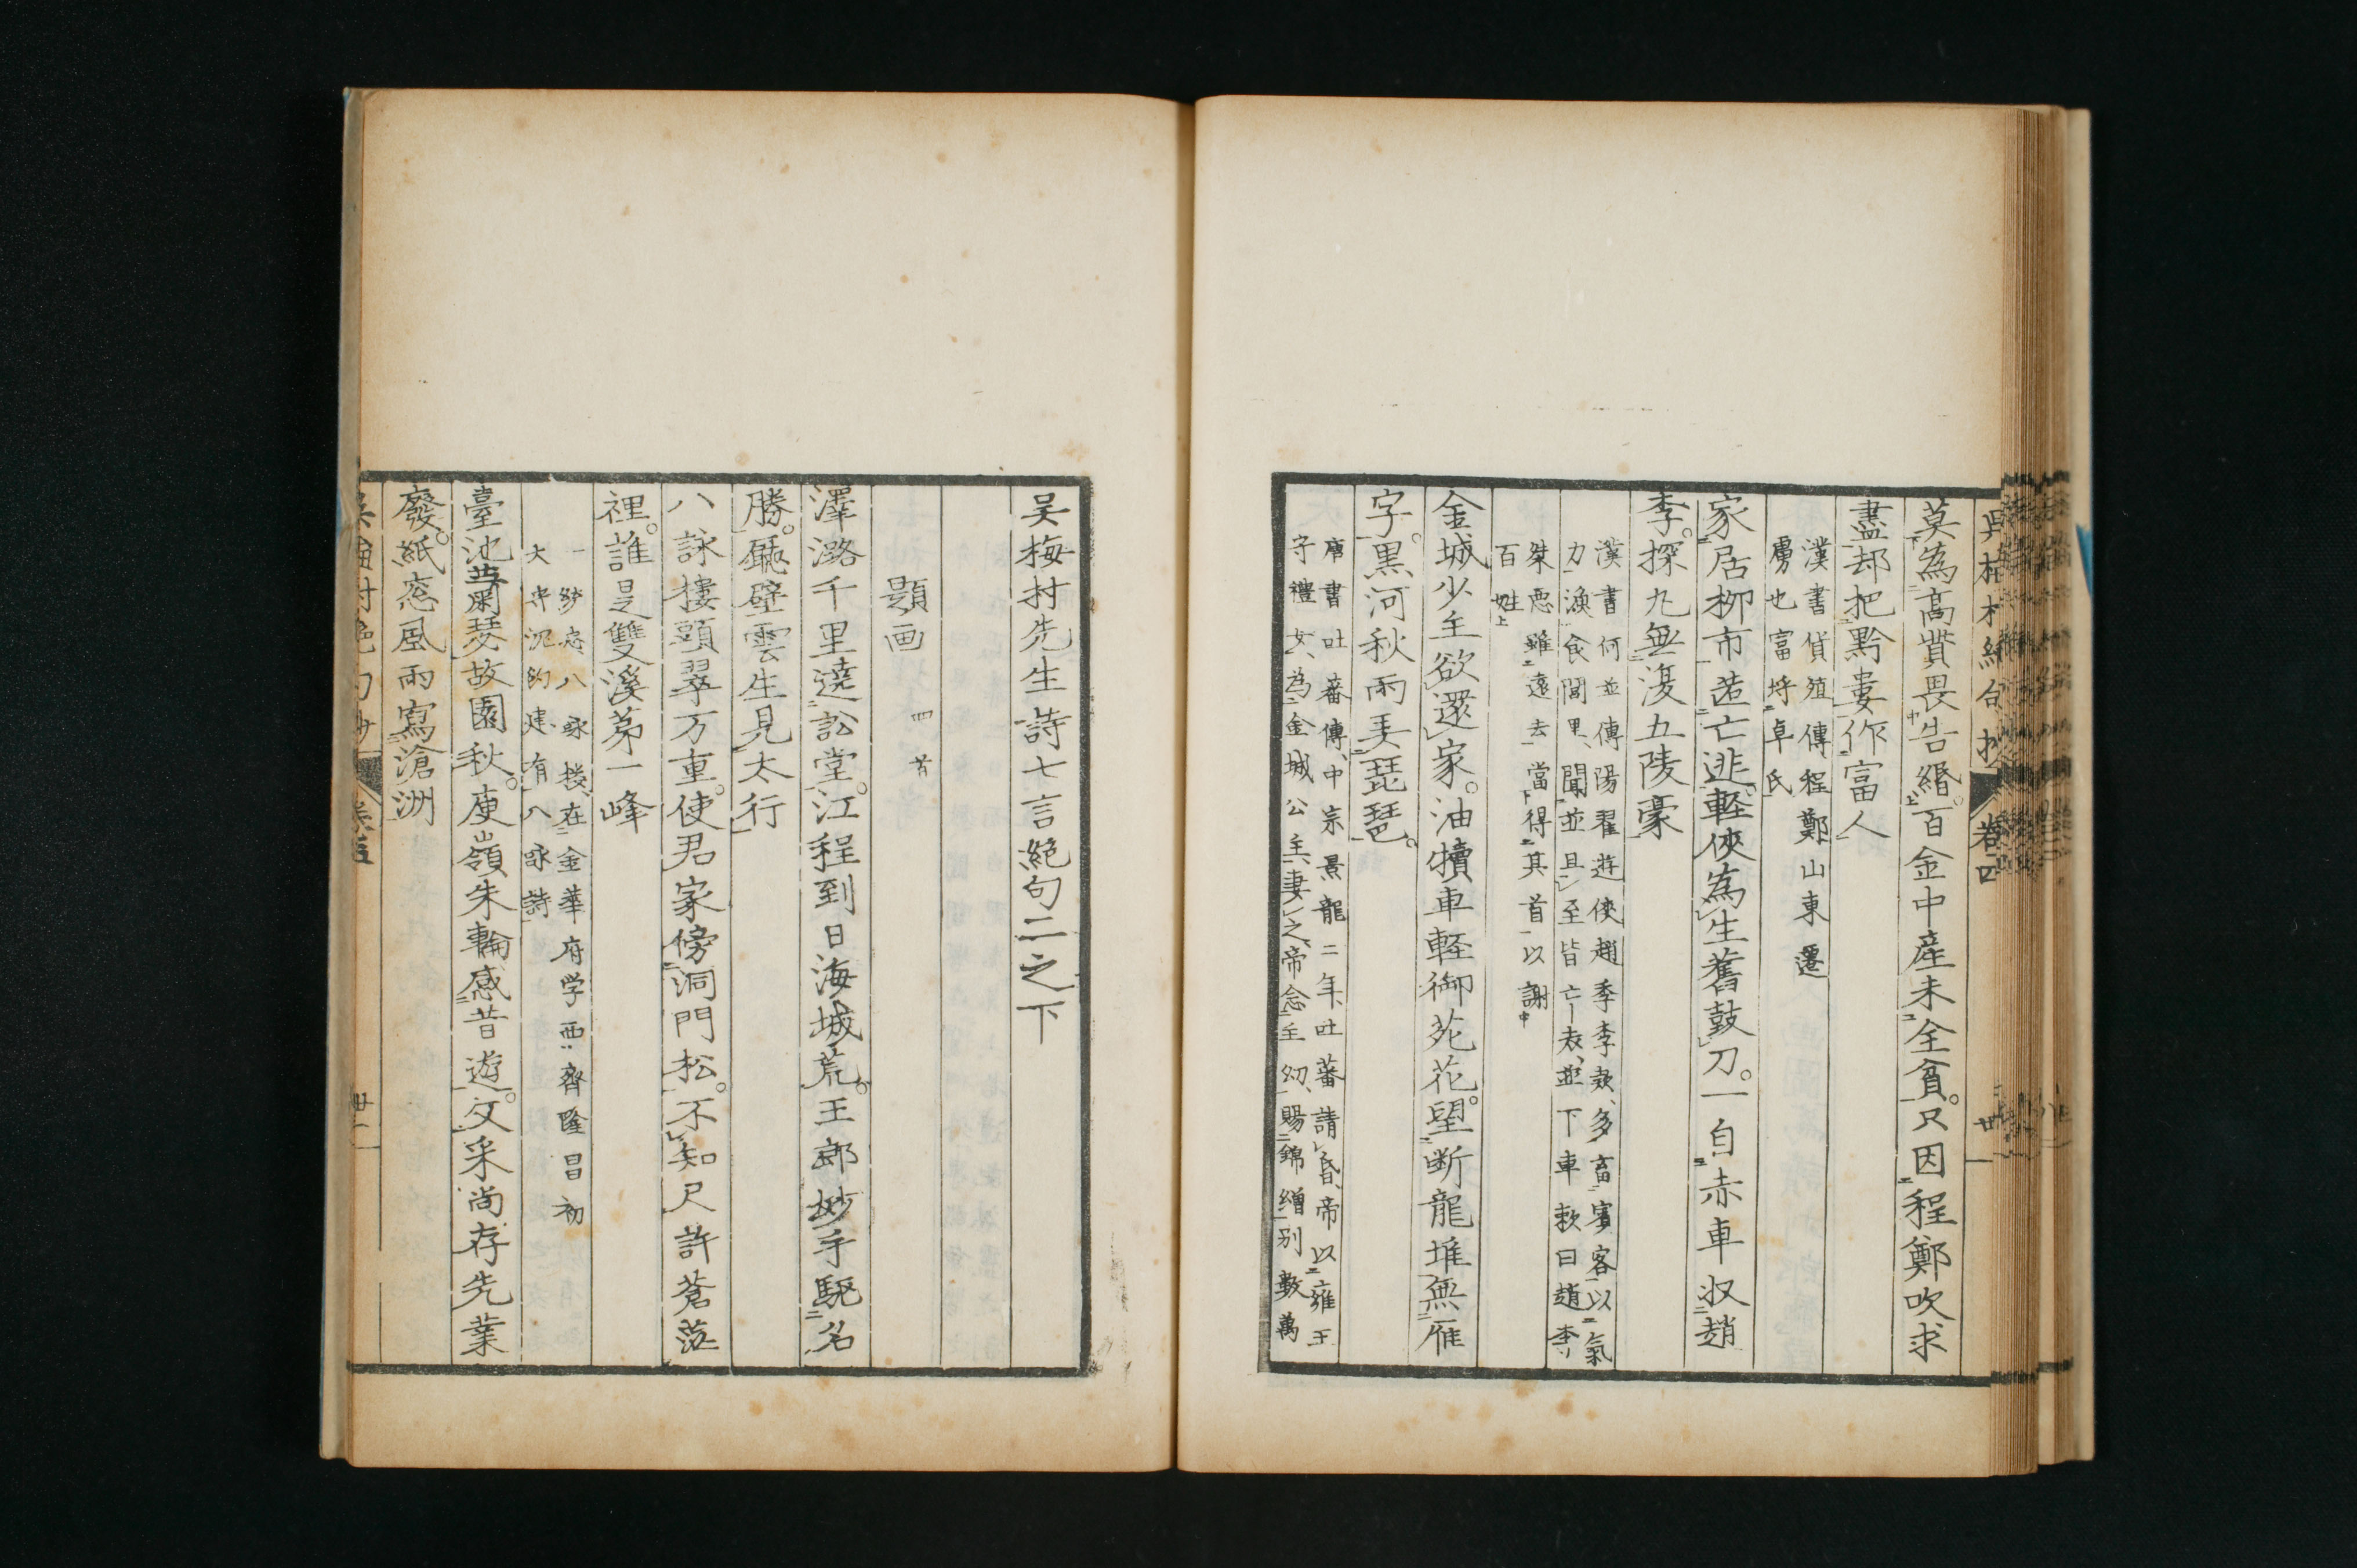 吳梅村絕句抄 卷四 廿一
莫為高貲畏告緡百金中產未全貧只因程鄭吹求
盡却把黔婁作富人
漢書貨殖傳程鄭山東遷
虜也富埒卓氏
家居柳市匿亡逃軽俠為生舊鼓刀一自赤車収趙
李探九無復五陵豪
漢書何並傳陽翟遊俠趙季李款多畜賓客以氣
力漁食閭里聞並且至皆亡去並下車敕曰趙李
桀悪雖遠去當得其首以謝
百姓
金城少主欲還家油犢車軽御苑花望断龍堆無雁
字黒河秋雨弄琵琶
唐書吐蕃傳中宗景龍二年吐蕃請昏帝以雍王
守禮女為金城公主妻之帝念主幼賜錦繒別數萬
吳梅村先生詩七言絕句二之下
題画 四首
澤潞千里遶訟堂江程到日海城荒王郎妙手驅名
勝甌壁雲生見太行
八詠樓頭翠万重使君家傍洞門松不知尺許蒼茫
裡誰是雙溪第一峰
一統志八詠楼在金華府学西齊隆昌初
太守沈約建有八詠詩
臺池蕭瑟故園秋庾嶺朱輪感昔遊文采尚存先業
廢紙窓風雨寫滄洲
吳梅村絕句抄 卷五 廿二